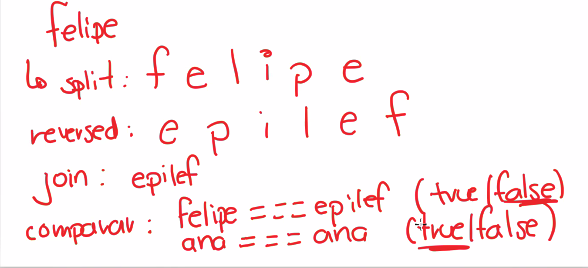 felipe
↳ split: f e l i p e
reversed: e p i l e f
join: epilef
comparar: felipe === epilef (true|false)
ana === ana (true|false)